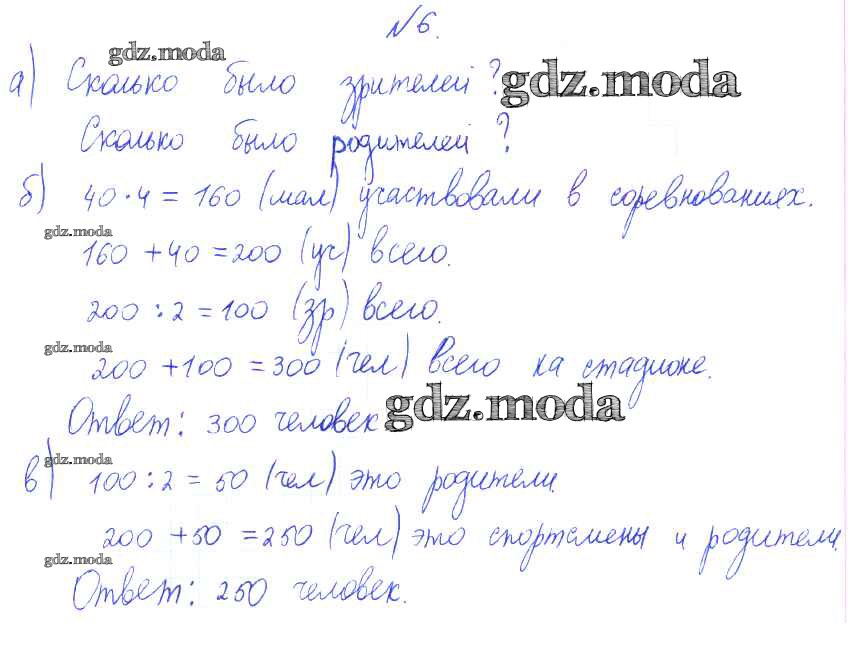 №6.
gdz.moda
а) Сколько было зрителей?
gdz.moda
Сколько было родителей?
б) 40·4=160 (мал) участвовали в соревнованиях.
gdz.moda
160+40=200 (уч) всего.
200:2=100 (зр) всего.
gdz.moda
200+100=300 (чел) всего на стадионе.
Ответ: 300 человек
gdz.moda
gdz.moda
в) 100:2=50 (чел) это родители.
200+50=250 (чел) это спортсмены и родители.
gdz.moda
Ответ: 250 человек.